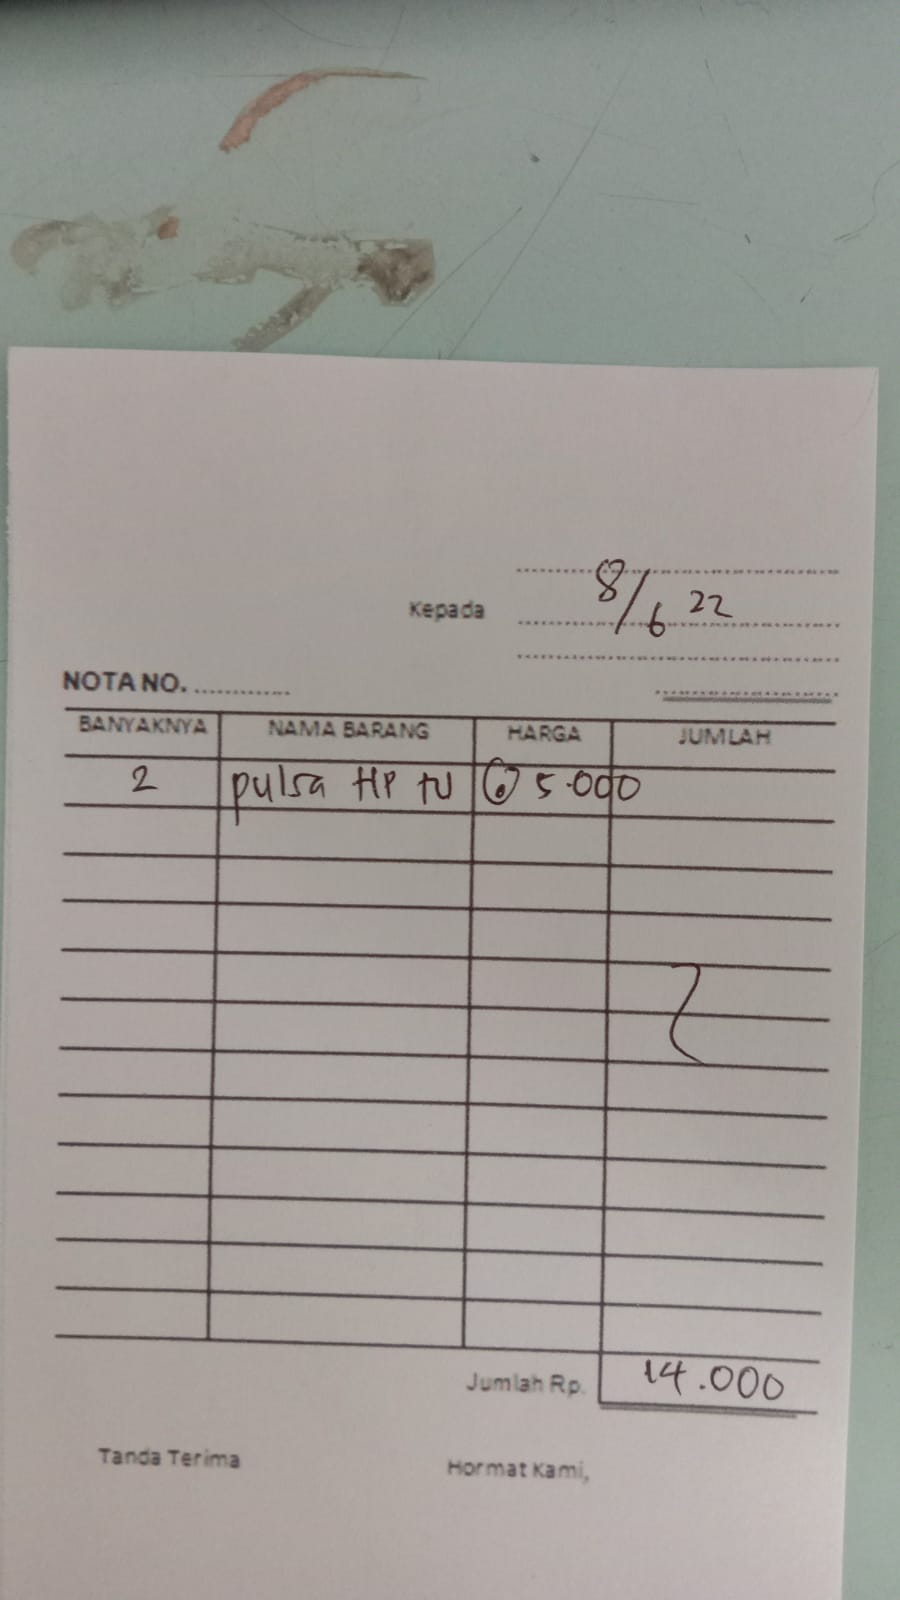 8/6 22
Kepada
NOTA NO. .............
BANYAKNYA NAMA BARANG HARGA JUMLAH
2 pulsa HP TU @ 5.000
Jumlah Rp. 14.000
Tanda Terima Hormat Kami,